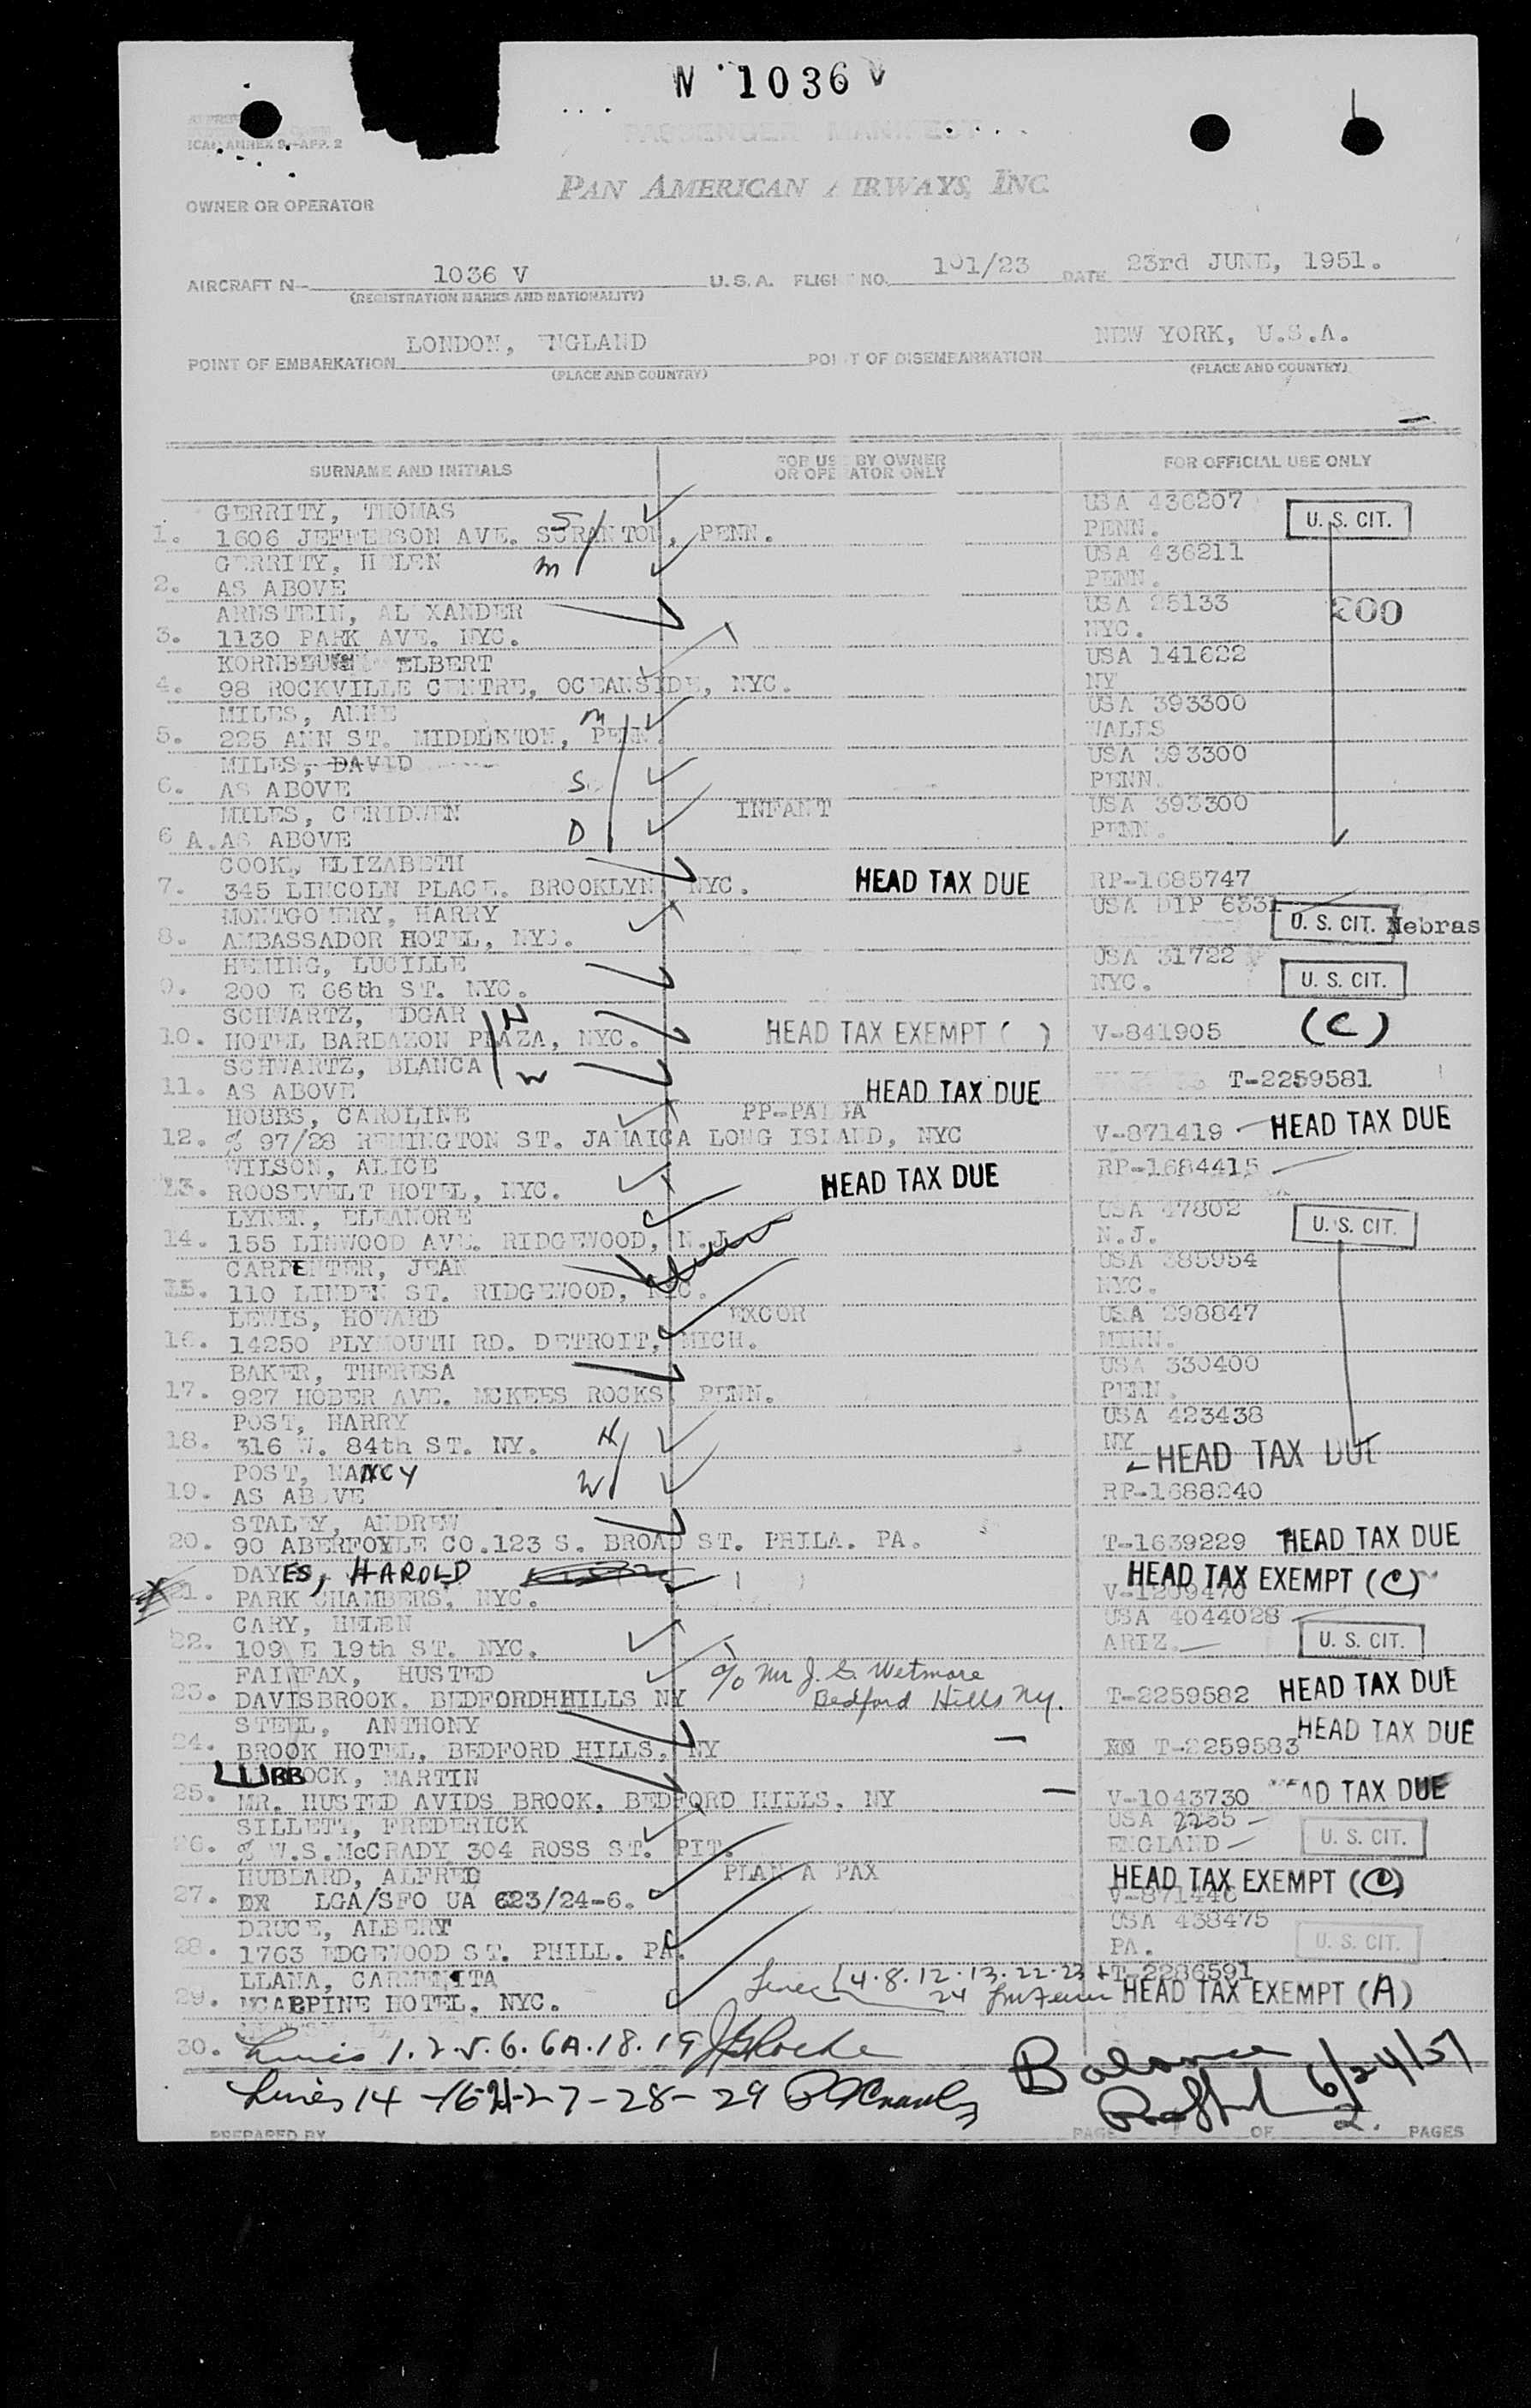 N 1036 V
ICAO ANNEX 9-APP. 2
PASSENGER MANIFEST
PAN AMERICAN AIRWAYS, INC.
OWNER OR OPERATOR
AIRCRAFT N- 1036 V U.S.A. FLIGHT NO. 101/23 DATE 23rd JUNE, 1951.
(REGISTRATION MARKS AND NATIONALITY)
POINT OF EMBARKATION LONDON, ENGLAND POINT OF DISEMBARKATION NEW YORK, U.S.A.
(PLACE AND COUNTRY) (PLACE AND COUNTRY)
SURNAME AND INITIALS FOR USE BY OWNER OR OPERATOR ONLY FOR OFFICIAL USE ONLY
GERRITY, THOMAS S USA 436207 U. S. CIT.
1. 1606 JEFFERSON AVE. SCRANTON, PENN. PENN.
GERRITY, HELEN M USA 436211
2. AS ABOVE PENN.
ARNSTEIN, ALEXANDER USA 25133 200
3. 1130 PARK AVE. NYC. NYC.
ELBERT USA 141622
4. 98 ROCKVILLE CENTRE, OCEANSIDE, NYC. NY
MILES, ANNE M USA 393300
5. 225 ANN ST. MIDDLETON, PENN. WALES
MILES, DAVID USA 393300
6. AS ABOVE S PENN.
MILES, CERIDWEN INFANT USA 393300
6 A. AS ABOVE D PENN.
COOK, ELIZABETH
7. 345 LINCOLN PLACE. BROOKLYN, NYC. HEAD TAX DUE RP-1685747
MONTGOMERY, HARRY USA DIP 6331
8. AMBASSADOR HOTEL, NYC. U. S. CIT. Nebras
HEMING, LUCILLE USA 31722
9. 200 E 66th ST. NYC. NYC. U. S. CIT.
SCHWARTZ, EDGAR H
10. HOTEL BARBAZON PLAZA, NYC. HEAD TAX EXEMPT ( ) V-841905 (C)
SCHWARTZ, BLANCA W
11. AS ABOVE HEAD TAX DUE T-2259581
HOBBS, CAROLINE PP-PAIGA
12. % 97/28 REMINGTON ST. JAMAICA LONG ISLAND, NYC V-871419 HEAD TAX DUE
WILSON, ALICE RP-1684415
13. ROOSEVELT HOTEL, NYC. HEAD TAX DUE
LYNEN, ELEANORE USA 47802 U. S. CIT.
14. 155 LINWOOD AVE. RIDGEWOOD, N.J. N.J.
CARPENTER, JEAN USA 385954
15. 110 LINDEN ST. RIDGEWOOD, NYC. NYC.
LEWIS, HOWARD EXCOR USA 298847
16. 14250 PLYMOUTH RD. DETROIT, MICH. MINN.
BAKER, THERESA USA 330400
17. 927 HOBER AVE. MCKEES ROCKS, PENN. PENN.
POST, HARRY USA 423438
18. 316 W. 84th ST. NY. H NY
POST, NANCY HEAD TAX DUE
19. AS ABOVE W RP-1688240
STALEY, ANDREW
20. 90 ABERFOYLE CO.123 S. BROAD ST. PHILA. PA. T-1639229 HEAD TAX DUE
DAYES, HAROLD HEAD TAX EXEMPT (C)
21. PARK CHAMBERS, NYC. V-1209470
CARY, HELEN USA 4044028
22. 109 E 19th ST. NYC. ARIZ. U. S. CIT.
FAIRFAX, HUSTED c/o Mr J. S. Wetmore
23. DAVISBROOK. BEDFORDHHILLS NY Bedford Hills Ny. T-2259582 HEAD TAX DUE
STEEL, ANTHONY HEAD TAX DUE
24. BROOK HOTEL, BEDFORD HILLS, NY T-2259583
LUBBOCK, MARTIN
25. MR. HUSTED AVIDS BROOK. BEDFORD HILLS. NY V-1043730 HEAD TAX DUE
SILLETT, FREDERICK USA 2235
26. % W.S.McCRADY 304 ROSS ST. PIT. ENGLAND U. S. CIT.
HUBBARD, ALFRED PLAN A PAX HEAD TAX EXEMPT (C)
27. LGA/SFO UA 623/24-6. V-871446
DRUCE, ALBERT USA 438475
28. 1763 EDGEWOOD ST. PHILL. PA. PA. U. S. CIT.
LLANA, CARMENITA Lines 4.8.12.13.22.23 + T-2286591
29. MCALPINE HOTEL, NYC. 24 HEAD TAX EXEMPT (A)
30. Lines 1.2.5.6.6A.18.19
Balance 6/24/51
Lines 14 -16-21-27-28-29
PREPARED BY PAGE 1 OF 2. PAGES